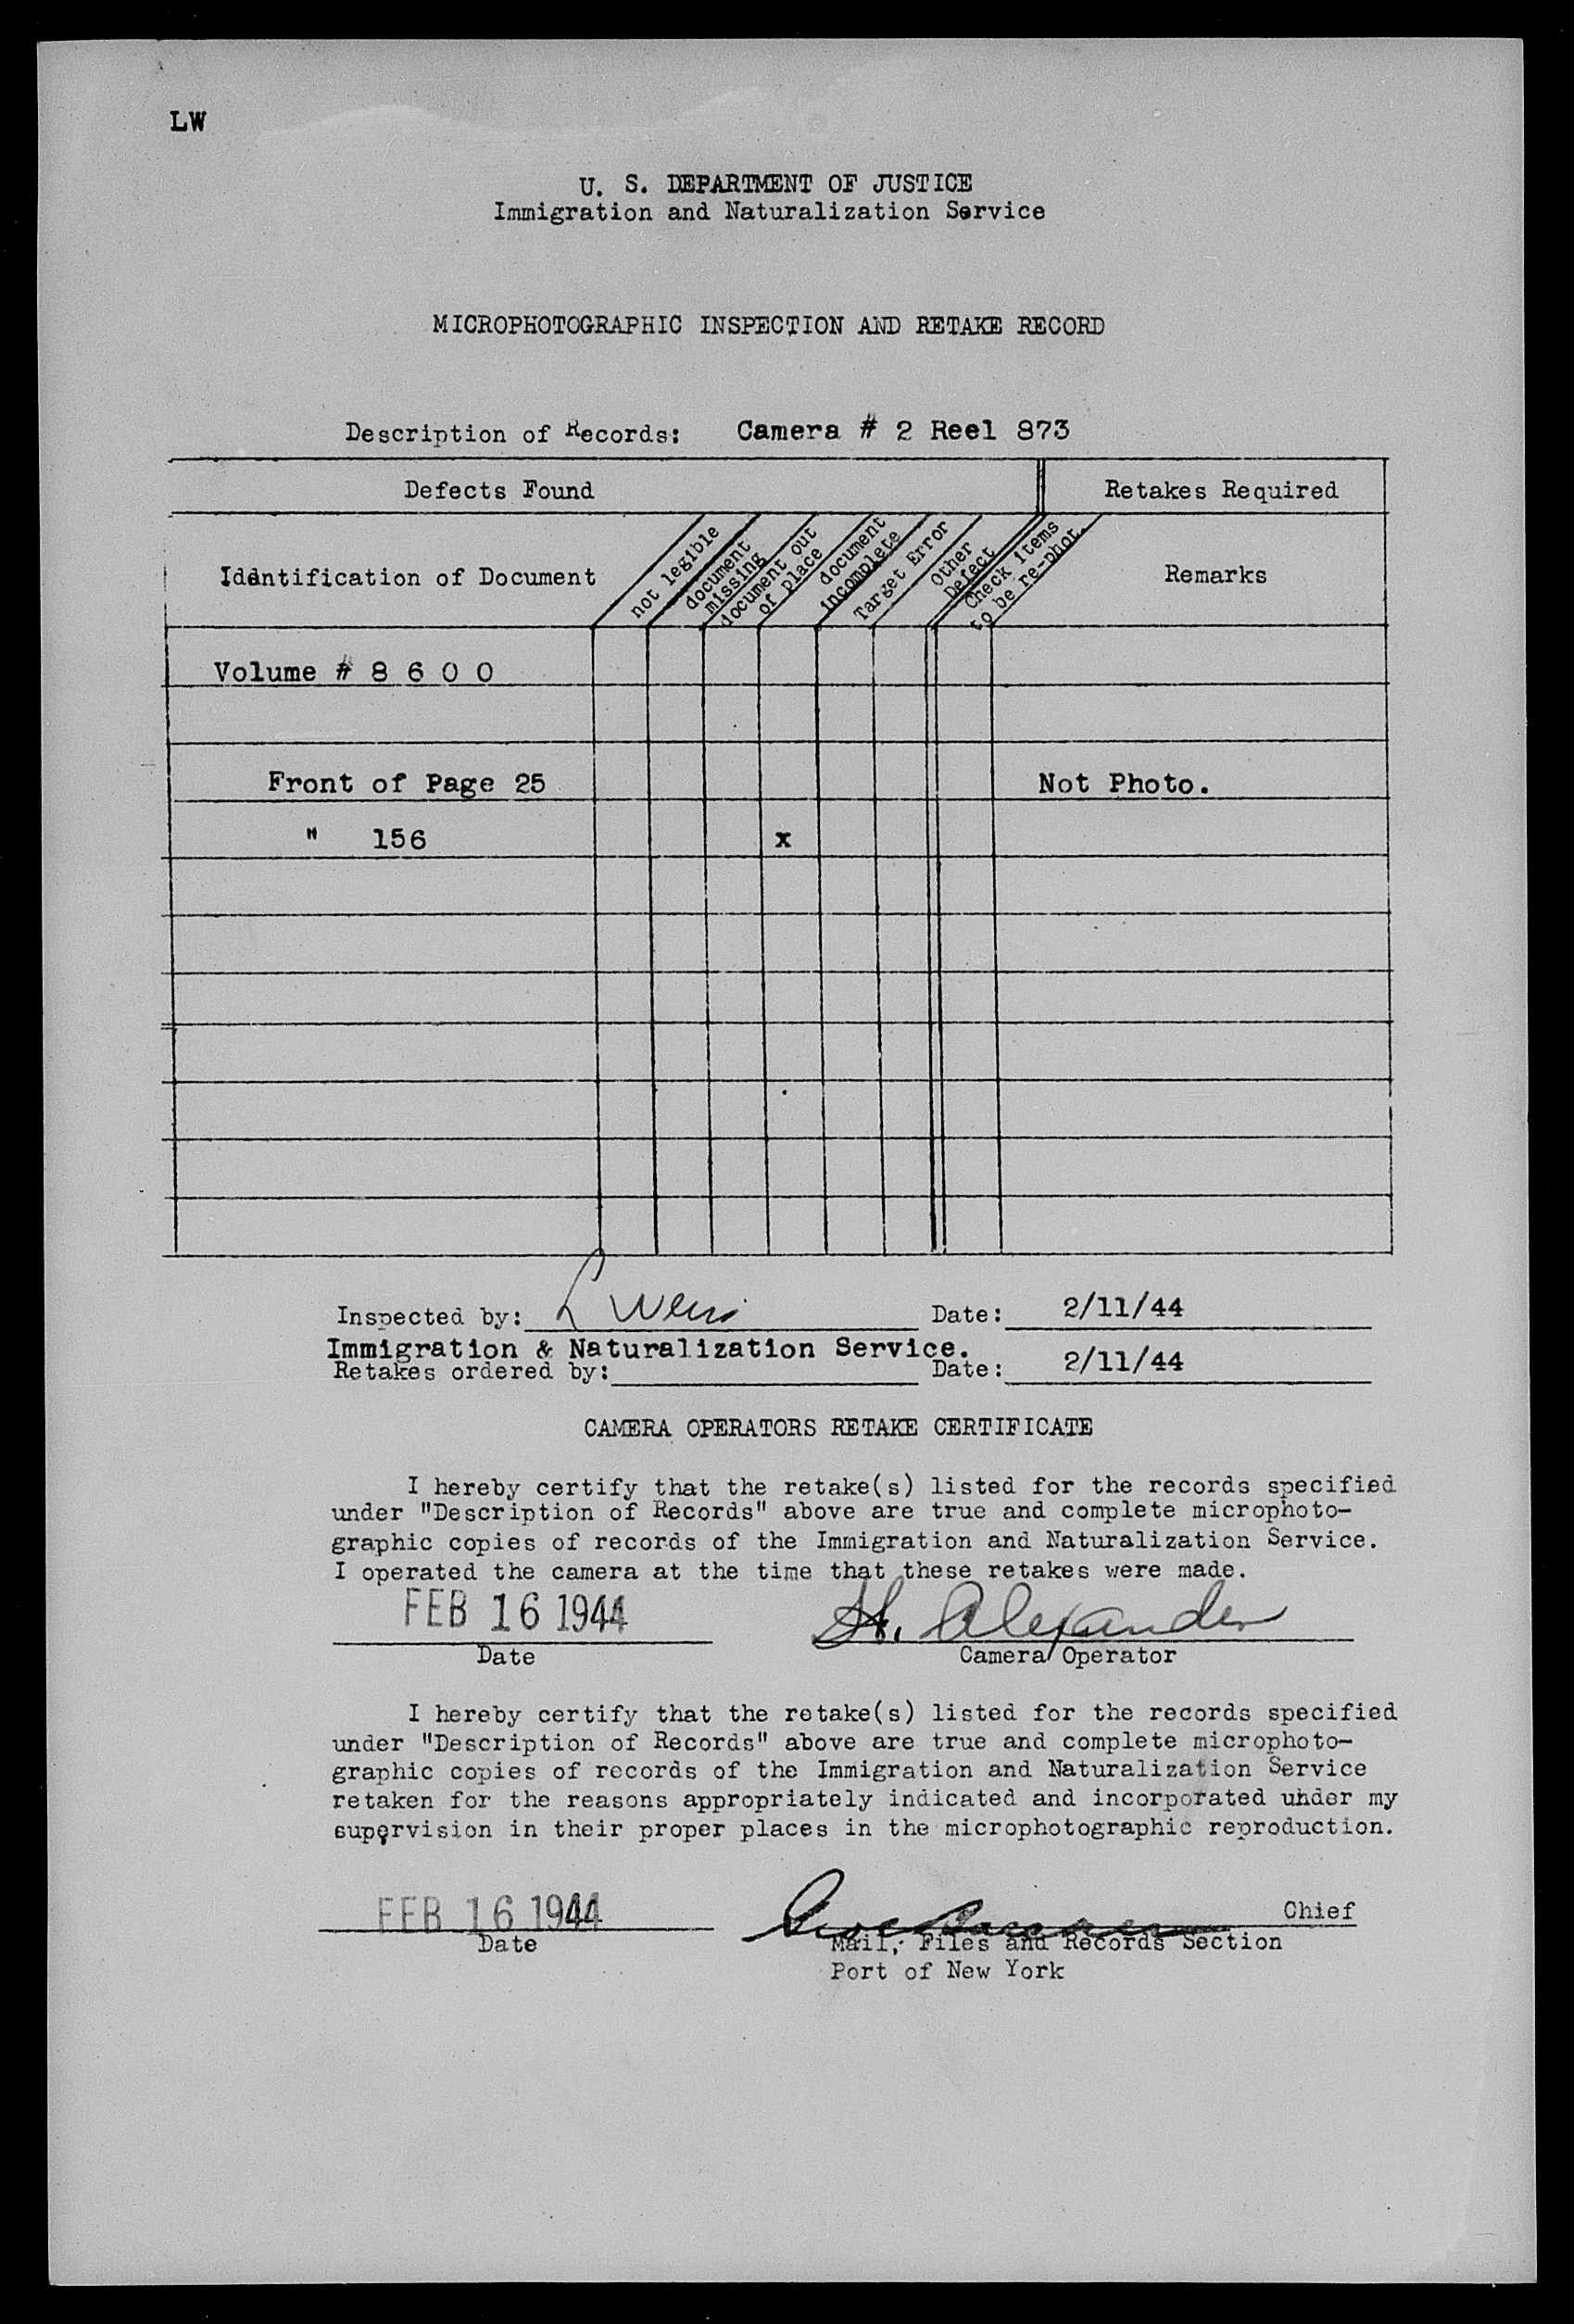 LW
U. S. DEPARTMENT OF JUSTICE
Immigration and Naturalization Service
MICROPHOTOGRAPHIC INSPECTION AND RETAKE RECORD
Description of Records: Camera # 2 Reel 873
Defects Found
Retakes Required
Identification of Document
not legible
document
missing
document out
of place
document
incomplete
Target Error
Other
Defect
Check items
to be re-phot.
Remarks
Volume # 8 6 0 0
Front of Page 25 Not Photo.
" 156 x
Inspected by: L Weis Date: 2/11/44
Immigration & Naturalization Service.
Retakes ordered by: Date: 2/11/44
CAMERA OPERATORS RETAKE CERTIFICATE
I hereby certify that the retake(s) listed for the records specified
under "Description of Records" above are true and complete microphoto-
graphic copies of records of the Immigration and Naturalization Service.
I operated the camera at the time that these retakes were made.
FEB 16 1944 H. Alexander
Date Camera Operator
I hereby certify that the retake(s) listed for the records specified
under "Description of Records" above are true and complete microphoto-
graphic copies of records of the Immigration and Naturalization Service
retaken for the reasons appropriately indicated and incorporated under my
supervision in their proper places in the microphotographic reproduction.
FEB 16 1944 Chief
Date Mail, Files and Records Section
Port of New York